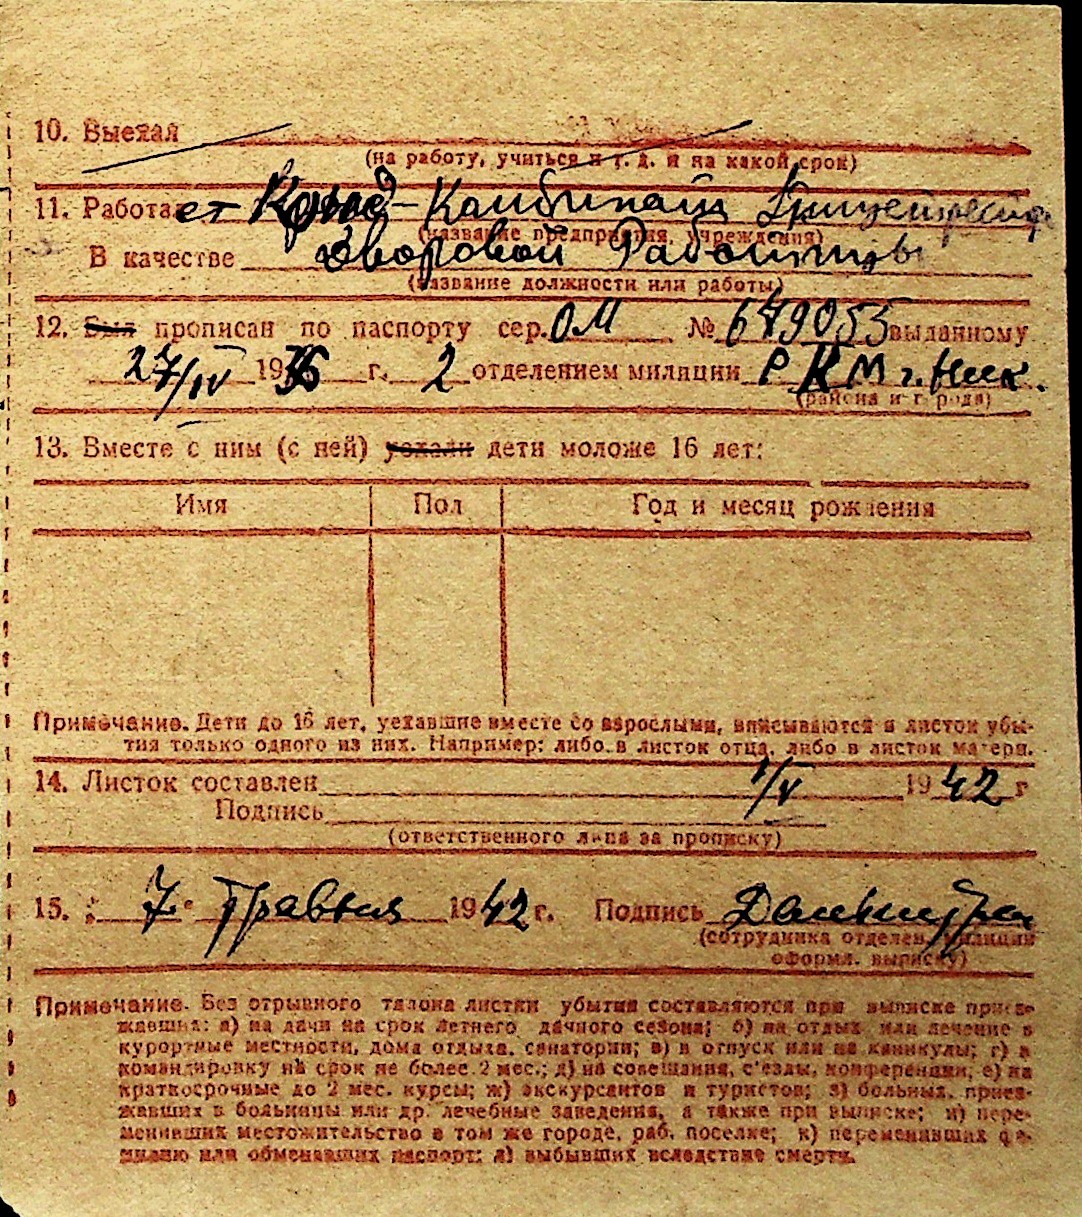 10. Выехал
(на работу, учиться и т. д. и на какой срок)
11. Работает - Комбинат
(название предприятия, учреждения)
В качестве дворовой работницы
(название должности или работы)
12. Был прописан по паспорту сер. ОМ № 649055 выданному
27/IV 1936 г. 2 отделением милиции РКМ г. Ник.
(района и города)
13. Вместе с ним (с ней) уехали дети моложе 16 лет:
Имя Пол Год и месяц рождения
Примечание. Дети до 16 лет, уехавшие вместе со взрослыми, вписываются в листок убы-
тия только одного из них. Например: либо в листок отца, либо в листок матери.
14. Листок составлен 1/V 1942 г
Подпись
(ответственного лица за прописку)
15. „ 7 " травня 1942 г. Подпись
(сотрудника отделен. милиции
оформл. выписку)
Примечание. Без отрывного талона листки убытия составляются при выписке приез-
жавших: а) на дачи на срок летнего дачного сезона; б) на отдых или лечение в
курортные местности, дома отдыха, санатории; в) в отпуск или на каникулы; г) в
командировку на срок не более 2 мес.; д) на совещания, с'езды, конференции; е) на
краткосрочные до 2 мес. курсы; ж) экскурсантов и туристов; з) больных, приез-
жавших в больницы или др. лечебные заведения, а также при выписке; и) пере-
менивших местожительство в том же городе, раб. поселке; к) переменивших фа-
милию или обменявших паспорт; л) выбывших вследствие смерти.